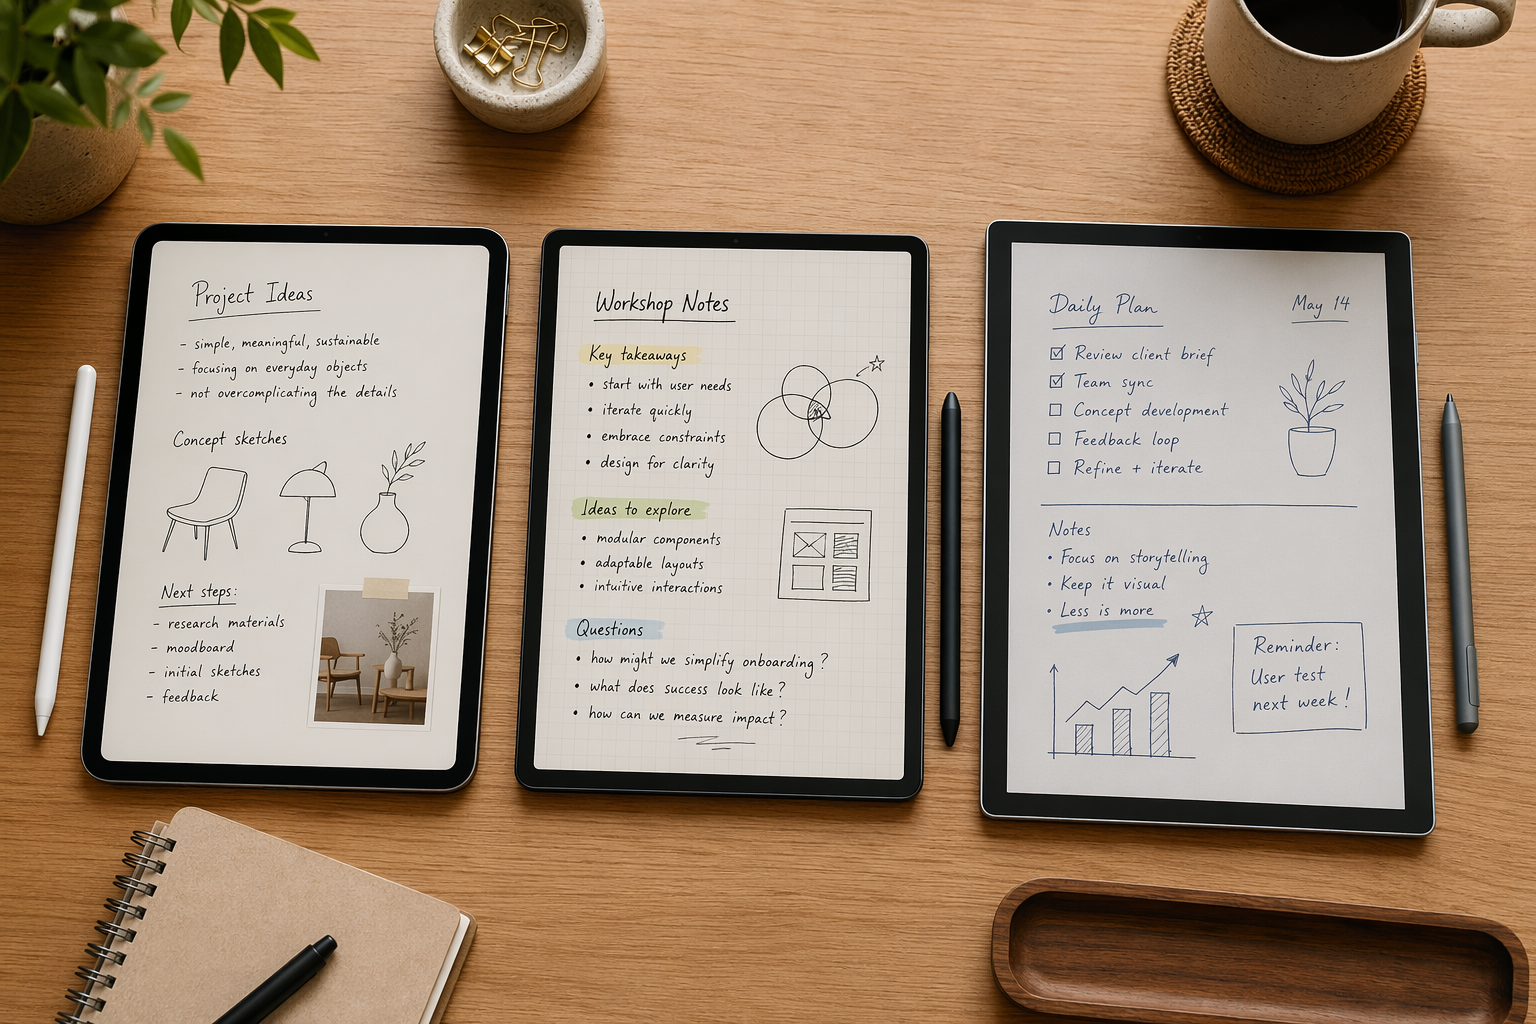 Project Ideas
- simple, meaningful, sustainable
- focusing on everyday objects
- not overcomplicating the details
Concept sketches
Next steps:
- research materials
- moodboard
- initial sketches
- feedback
Workshop Notes
Key takeaways
• start with user needs
• iterate quickly
• embrace constraints
• design for clarity
Ideas to explore
• modular components
• adaptable layouts
• intuitive interactions
Questions
• how might we simplify onboarding?
• what does success look like?
• how can we measure impact?
Daily Plan
May 14
☑ Review client brief
☑ Team sync
☐ Concept development
☐ Feedback loop
☐ Refine + iterate
Notes
• Focus on storytelling
• Keep it visual
• Less is more
Reminder:
User test
next week!